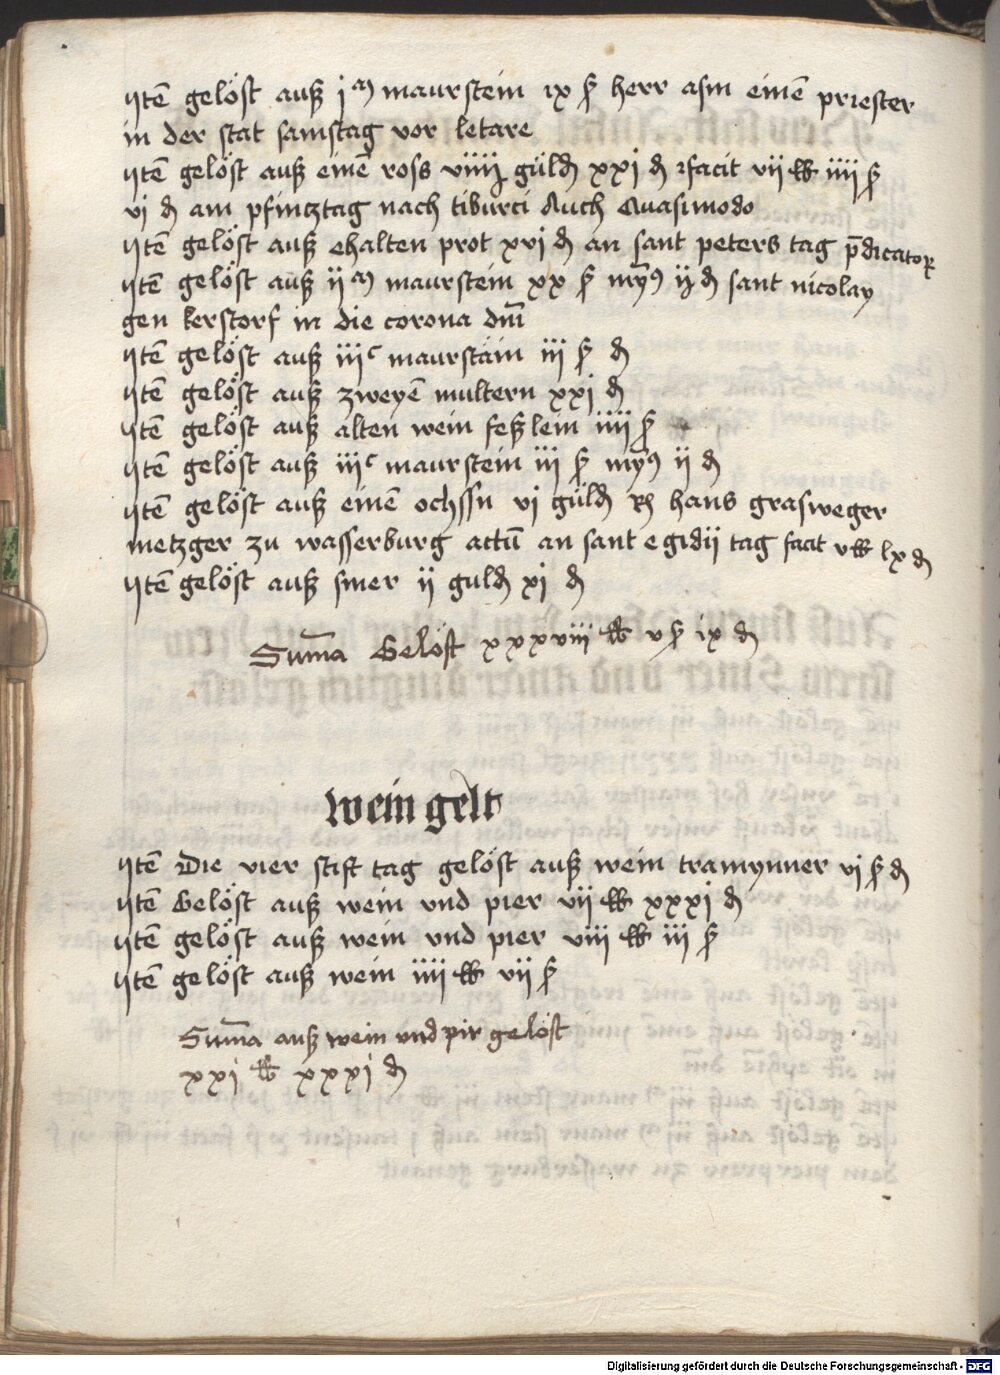 Itē gelöst auß j m maurstein ix ß herr asm einē priester
in der stat samstag vor letare
Itē gelöst auß einē ross viiij güld xxj d facit vij lb iiij ß
vj d am pfincztag nach tiburci Auch Quasimodo
Itē gelöst auß ehalten prot xvj d an sant peters tag p̄dicator
Itē gelöst auß ij m maurstein xx ß mỹ9 ij d sant nicolay
gen kerstorf in die corona dm̄
Itē gelöst auß iij c maurstain iij ß d
Itē gelöst auß zweyē multern xxj d
Itē gelöst auß alten wein feßlein iiij ß
Itē gelöst auß iij c maurstein iij ß mỹ9 ij d
Itē gelöst auß einē ochssn vj güld Rh hans grasweger
metzger zu wasserburg actū an sant egidij tag facit v lb lx d
Itē gelöst auß smer ij guld xj d
Sum̄a Gelöst xxxviii lb v ß ix d
wein gelt
Itē Die vier stift tag gelöst auß wein tramynner vj ß d
Itē Gelöst auß wein vnd pier vij lb xxxj d
Itē gelöst auß wein vnd pier viii lb iij ß
Itē gelöst auß wein iiij lb vij ß
Sum̄a auß wein vnd pir gelöst
xxj lb xxxj d
Digitalisierung gefördert durch die Deutsche Forschungsgemeinschaft - DFG